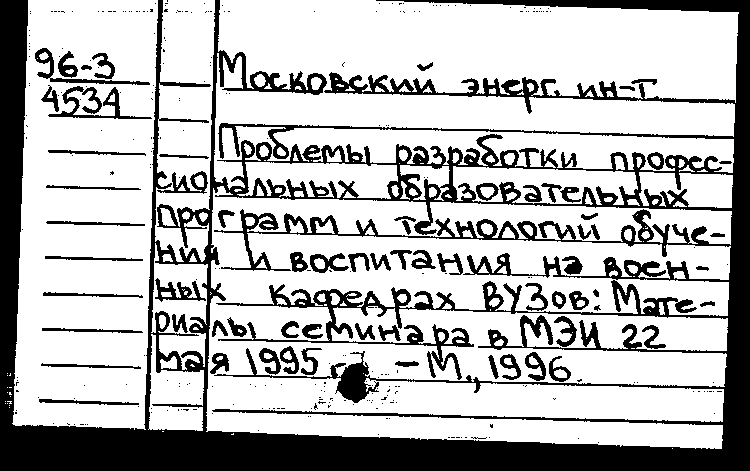 96-3
4534
Московский энерг. ин-т.
Проблемы разработки профес-
сиональных образовательных
программ и технологий обуче-
ния и воспитания на воен-
ных кафедрах ВУЗов: Мате-
риалы семинара в МЭИ 22
мая 1995 г. – М., 1996.